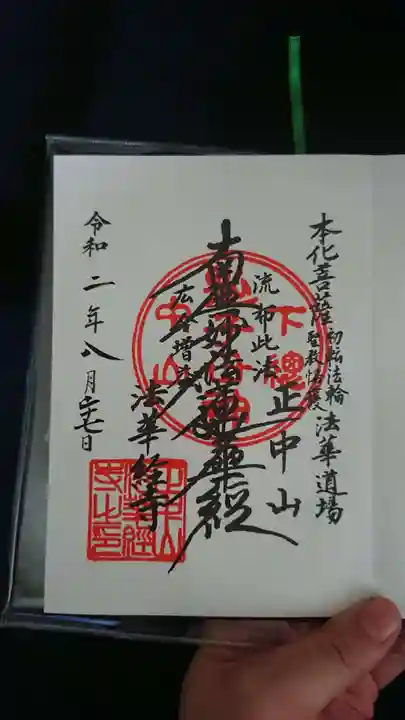 本化菩薩
初転法輪
聖教格護
法華道場
正中山
流布此法
南無妙法蓮華経
広令増益
法華経寺
令和二年八月廿七日
下總
中山